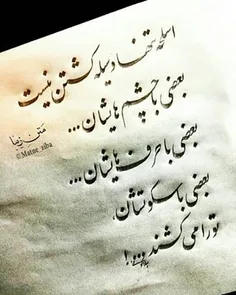 اسلحه تنها وسیله کشتن نیست
بعضی با چشم هایشان...
بعضی با حرف هایشان...
بعضی با سکوتشان،
تو را می کشند...!
متن زیبا
©Matne_ziba